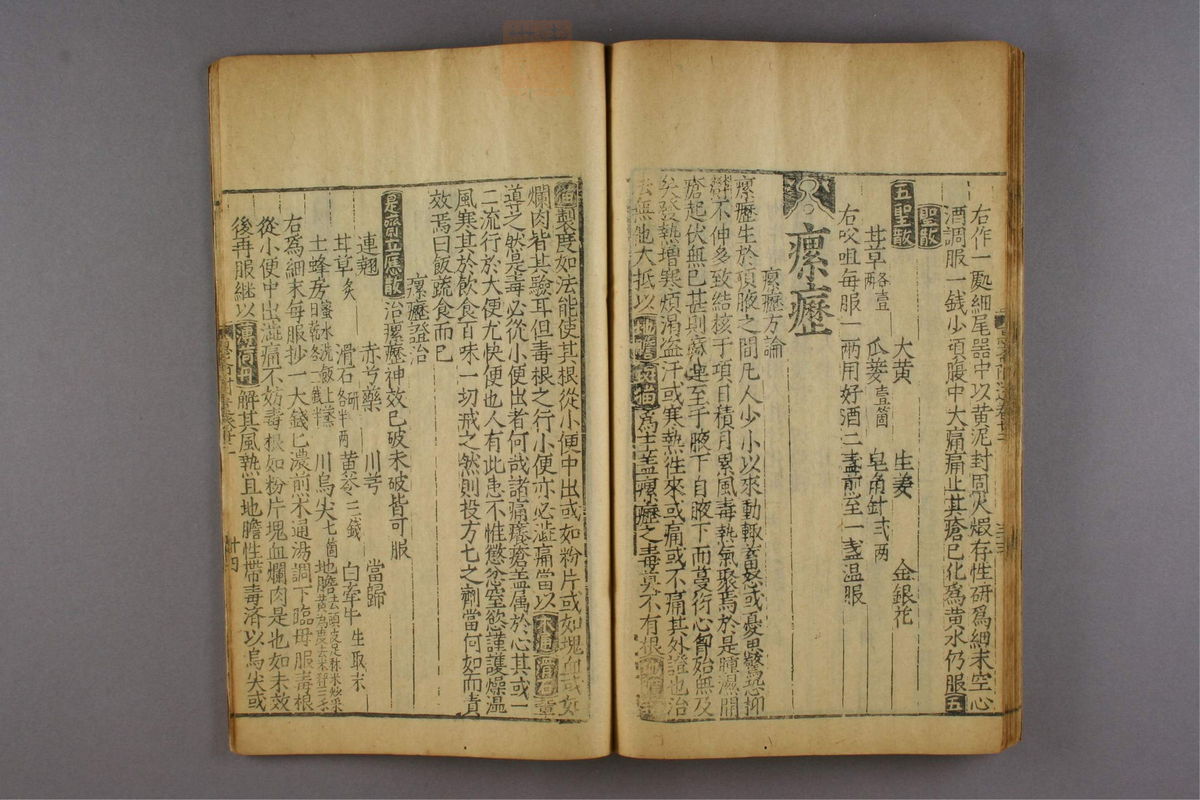 右作一處細尾器中以黄泥封固火煅存性研爲細末空心
酒調服一錢少頃腹中大痛痛止其瘡已化爲黄水仍服五
聖散
五聖散
大黄 生姜 金銀花
甘草各壹兩 瓜蔞壹箇 皂角針弍兩
右㕮咀每服一兩用好酒二盞煎至一盞温服
瘰癧
瘰癧方論
瘰癧生於項腋之間凡人少小以來動輒蓄怒或憂思驚恐抑
不伸多致結核于項目積月累風毒熱氣聚焉於是腫濕開
瘡起伏無已甚則連至于腋下自腋下而蔓衍心胷始無及
矣發熱增寒煩渴盗汗或寒熱徃來或痛或不痛其外證也治
法無他大抵以地膽斑猫爲主蓋瘰癧之毒莫不有根
製度如法能使其根從小便中出或如粉片或如塊血或如
爛肉皆其驗耳但毒根之行小便亦必澁痛當以木通滑石
導之然是毒必從小便出者何哉諸痛痒瘡盖属於心其或一
二流行於大便尤快便也人有此患不惟懲忿窒慾謹護燥温
風寒其於飲食百味一切戒之然則投方七之劑當何如而責
效焉曰飯蔬食而已
瘰癧證治
是齋立應散治瘰癧神效已破未破皆可服
連翹 赤芍藥 川芎 當歸
甘草炙 滑石研各半兩 黄芩三錢 白牽牛生取末
土蜂房蜜水洗飯上蒸日乾各二錢半 川烏尖七箇 地膽去頭翅足秤米炒米黄爲度去米秤三錢
右爲細末每服抄一大錢匕濃煎木通湯調下臨毋服毒根
從小便中出澁痛不妨毒根如粉片塊血爛肉是也如未效
後再服繼以宣何丹解其風熱且地膽性帶毒済以烏尖或